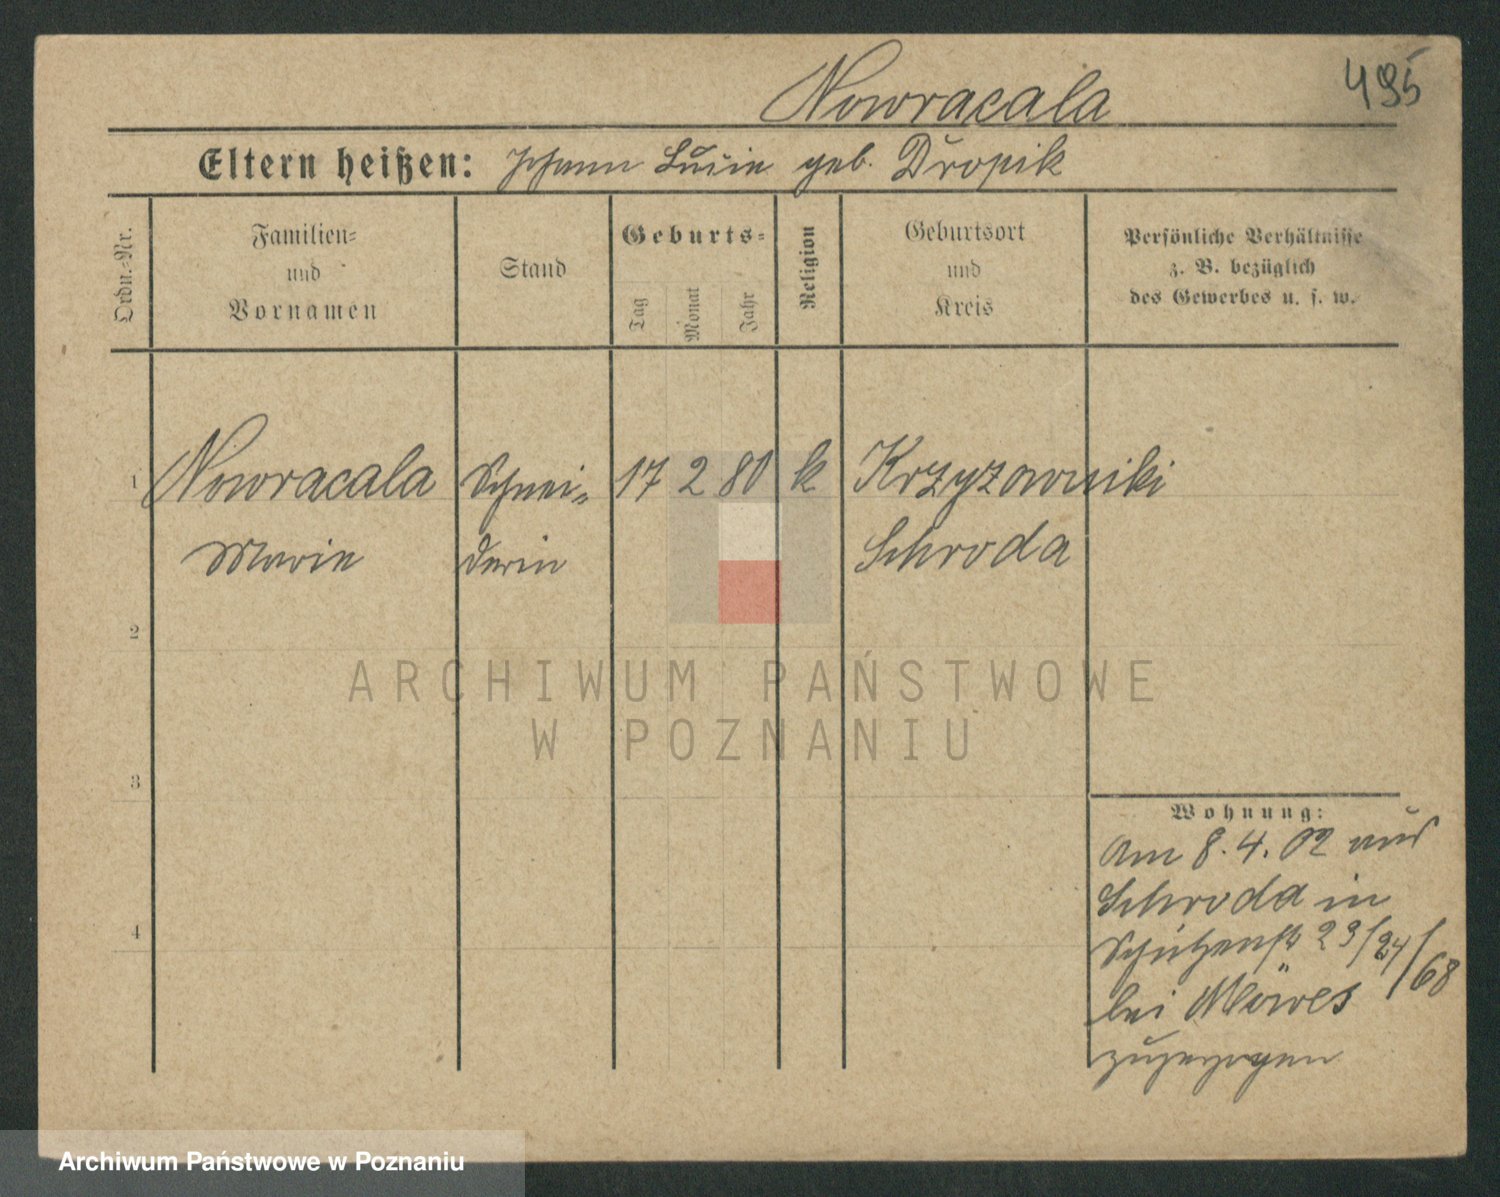 Nowracala
495
Eltern heißen: Johann Luise geb. Dropik
Ordn.-Nr.
Familien-
und
Vornamen
Stand
Geburts-
Tag
Monat
Jahr
Religion
Geburtsort
und
Kreis
Persönliche Verhältnisse
z. B. bezüglich
des Gewerbes u. s. w.
1 Nowracala Schnei- 17 2 80 k Krzyzowniki
Marie derin Schroda
2
ARCHIWUM PAŃSTWOWE
W POZNANIU
3
Wohnung:
Am 8. 4. 02 aus
Schroda in
4
Schützenstr 23/24/68
bei Möwes
zugezogen
Archiwum Państwowe w Poznaniu